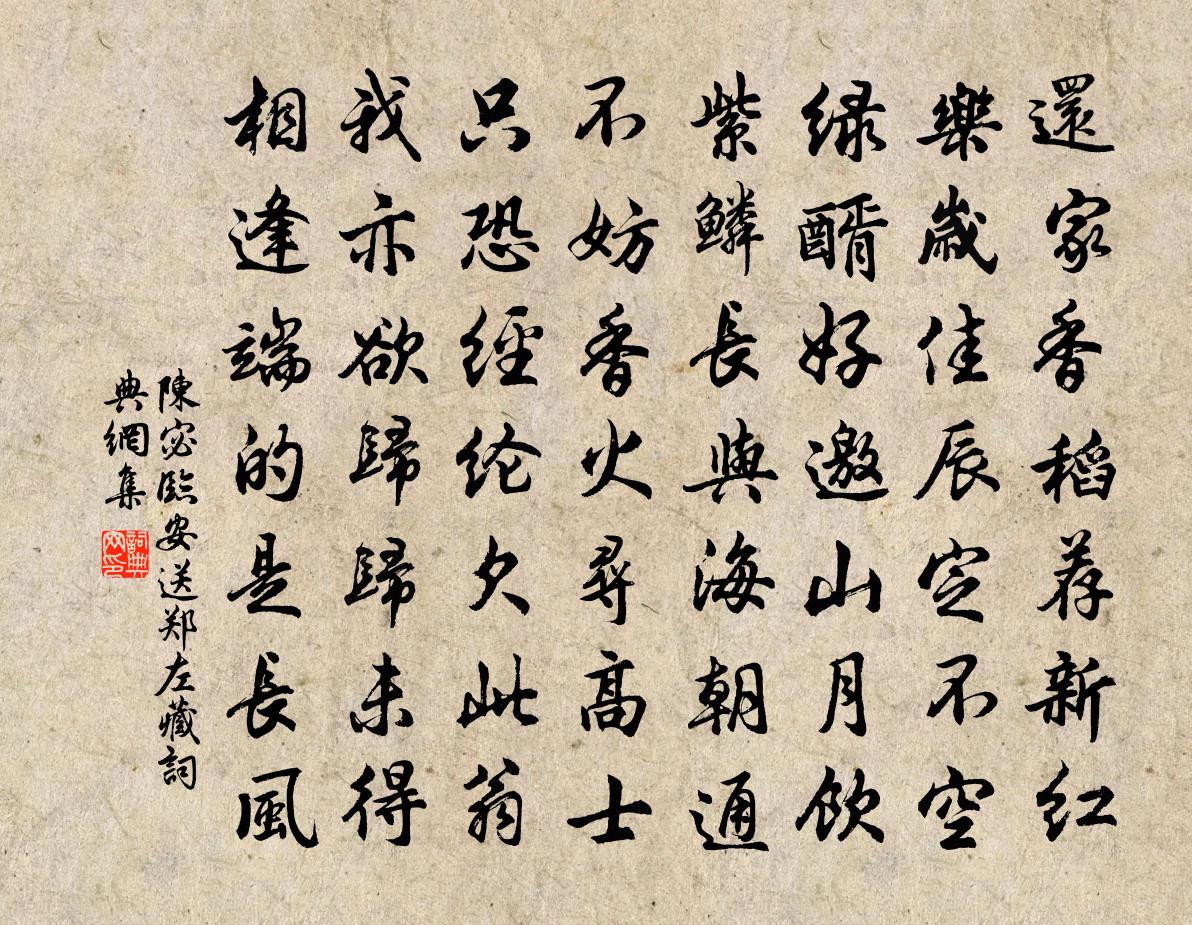 還家香稻荐新红
樂歲佳辰定不空
绿醑好邀山月飲
紫鳞長與海朝通
不妨香火尋高士
只恐經纶欠此翁
我亦欲歸歸未得
相逢端的是長風
陳宓臨安送郑左藏詞
典網集
詞典
网印